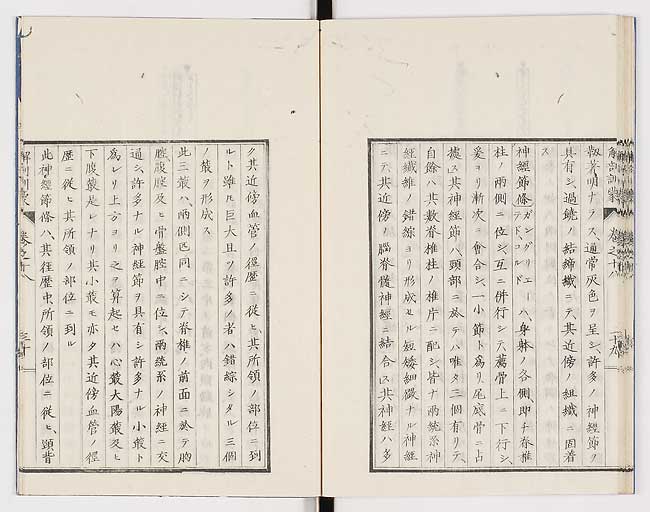 解剖訓蒙
卷之十八
二十九
靱著明ナラス通常灰色ヲ呈シ許多ノ神經節ヲ
具有シ過饒ノ結締織ニテ其近傍ノ組織ニ固着
ス
神經節條ガングリエーハ身躬ノ各側即チ脊椎
テドコルド
柱ノ兩側ニ位シ互ニ併行シテ薦骨上ニ下行シ
爰ヨリ漸次ニ會合シ一小節ト爲リ尾底骨ニ占
據ス其神經節ハ頸部ニ於テハ唯タ三個有リテ
自餘ハ其數脊椎柱ノ椎片ニ配シ皆ナ兩統系神
經纖維ノ錯綜ヨリ形成セル短矮細微ナル神經
ニテ其近傍ノ腦脊髓神經ニ結合ス其神經ハ多
ク其近傍血管ノ徑歷ニ從ヒ其所領ノ部位ニ到
ルト雖ㇵ巨大且ツ許多ノ者ハ錯綜シタル三個
ノ叢ヲ形成ス
此三叢ハ兩側匹同ニシテ脊椎ノ前面ニ於テ胸
腔腹腔及ヒ骨盤腔中ニ位シ兩統系ノ神經ニ交
通シ許多ナル神經節ヲ具有シ許多ナル小叢ト
爲レリ上方ヨリ之ヲ算起セハ心叢大陽叢及ヒ
下腹叢是レナリ其小叢モ亦タ其近傍血管ノ徑
歷ニ從ヒ其所領ノ部位ニ到ル
此神經節條ハ其徑歷中所領ノ部位ニ從ヒ頸背
解剖訓蒙
卷之十八
三十